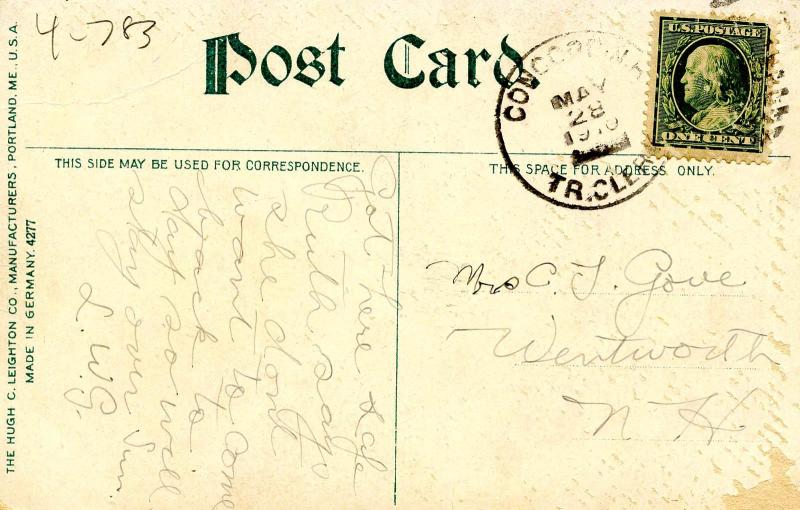 4-783
Post Card
U.S. POSTAGE
ONE CENT
CONCORD, N.H.
MAY
28
1910
TR. CLERK
THIS SIDE MAY BE USED FOR CORRESPONDENCE.
THIS SPACE FOR ADDRESS ONLY.
THE HUGH C. LEIGHTON CO., MANUFACTURERS, PORTLAND, ME., U.S.A.
MADE IN GERMANY. 4277
Got here Safe
Ruth says
she dont
want to come
back to
day so will
stay over Sun.
L. W. G.
Mrs C. J. Gove
Wentworth
N H